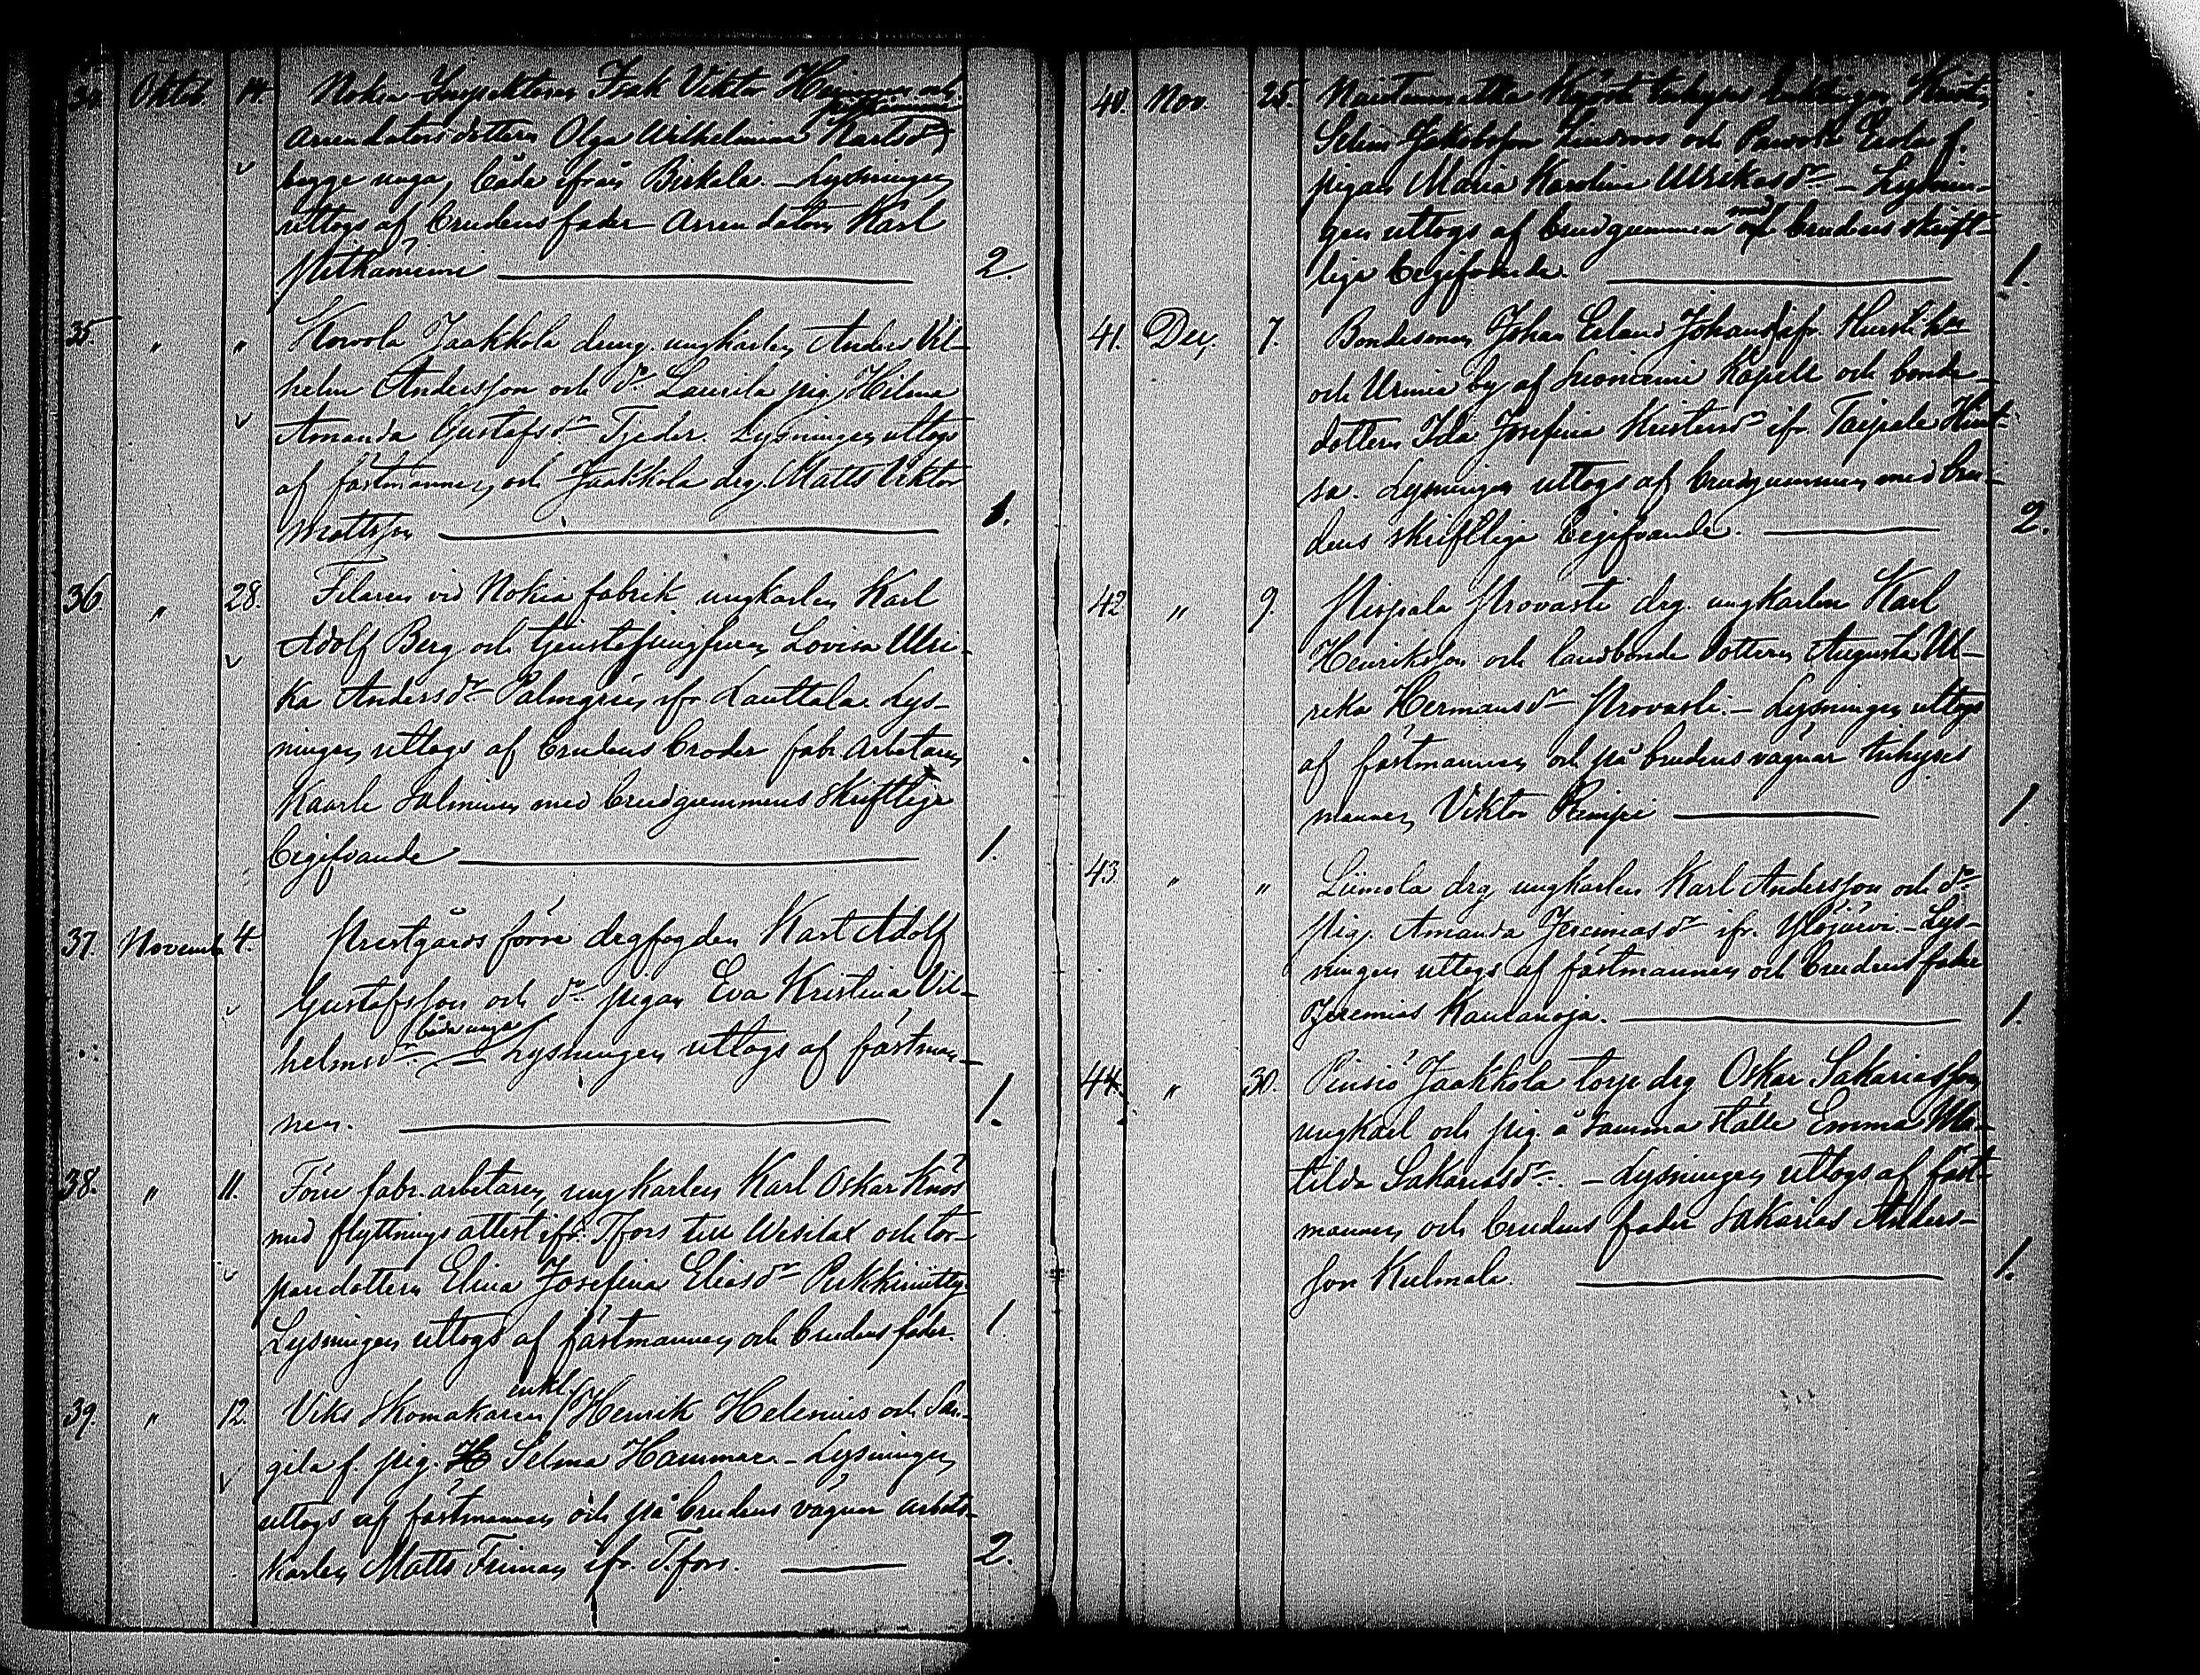 34. Oktob. 14. Nokia Inspektoren Isak Viktor Heimonen och
arrendators dottern Olga Wilhelmina Karlsdr
begge unga, båda ifrån Birkala. – Lysningen
uttogs af brudens fader arrendatorn Karl
Pitkäniemi 2.
35. " " Kowola Jaakkola dreng. ungkarlen Anders Vil-
helm Andersson och dº Laurila pig. Hilma
Amanda Gustafsdr Tjeder. Lysningen uttogs
af fästmannen och Jaakkola drg. Matts Viktor
Mattsson 1.
36. " 28. Filaren vid Nokia fabrik ungkarlen Karl
Adolf Berg och tjenstejungfrun Lovisa Ulri-
ka Andersdr Palmgren ifr. Lauttala. Lys-
ningen uttogs af brudens broder fabr. arbetaren
Kaarle Salminen med brudgummens skriftliga
begifvande 1.
37. Novemb. 4. Prestgårds förre drgfogden Karl Adolf
Gustafsson och dº pigan Eva Kristina Vil-
helmsdr båda unga – Lysningen uttogs af fästman-
nen. 1.
38. " 11. Förre fabr. arbetaren ungkarlen Karl Oskar Knös
med flyttnings attest ifr. T.fors till Wesilax och tor-
paredottern Elina Josefina Eliasdr
Lysningen uttogs af fästmannen och brudens fader. 1.
39. " 12. Viks Skomakaren enkl. Henrik Helenius och Sar-
gila f. pig. Selma Hammar. – Lysningen
uttogs af fästmannen och på brudens vägnar arbets-
karlen Matts Friman ifr. T.fors. 2.
40. Nov. 25.
Jakobsson och f.
pigan Maria Karolina Ulrikasdr – Lysnin-
gen uttogs af brudgummen med brudens skrift-
liga begifvande. 1.
41. Dec. 7. Bondesonen Johan Erland Johansson ifr.
och by af Suoniemi Kapell och bonde-
dottern Ida Josefina Kustersdr ifr. Taipale
Lysningen uttogs af brudgummen med bru-
dens skriftliga begifvande. 2.
42 " 9. Pispala Provasti drg. ungkarlen Karl
Henriksson och landbonde dottern Augusta Ul-
rika Hermansdr Provasti. – Lysningen uttogs
af fästmannen och på brudens vägnar inhyses
mannen Viktor Rimpi 1.
43 " " Liimola drg. ungkarlen Karl Andersson och dº
pig. Amanda Jeremiasdr ifr. Ylöjärvi. – Lys-
ningen uttogs af fästmannen och brudens fader
Jeremias Kauranoja. 1.
44. " 30. Pinsiö Jaakkola torp. drg Oskar Sakariasson
ungkarl och pig. å samma ställe Emma Ma-
tilda Sakariasdr. – Lysningen uttogs af fäst-
mannen och brudens fader Sakarias Anders-
son Kulmala. 1.